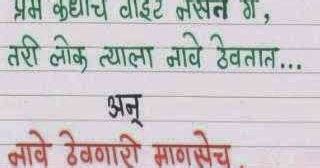 प्रेम कधीच वाईट नसत ग,
तरी लोक त्याला नावे ठेवतात...
अन्
नावे ठेवणारी माणसेच